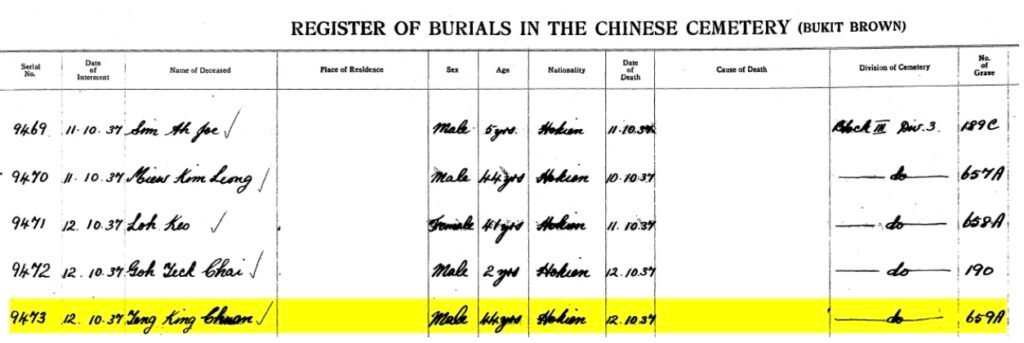 REGISTER OF BURIALS IN THE CHINESE CEMETERY (BUKIT BROWN)
Serial No. Date of Interment Name of Deceased Place of Residence Sex Age Nationality Date of Death Cause of Death Division of Cemetery No. of Grave
9469 11.10.37 Sim Ah Joe ✓ Male 5 yrs. Hokien 11.10.37 Block III Div. 3. 189C
9470 11.10.37 Miew Kim Leong ✓ Male 44 yrs Hokien 10.10.37 do 657A
9471 12.10.37 Loh Keo ✓ Female 41 yrs Hokien 11.10.37 do 658A
9472 12.10.37 Goh Teck Chai ✓ Male 2 yrs Hokien 12.10.37 do 190
9473 12.10.37 Teng King Chuan ✓ Male 44 yrs Hokien 12.10.37 do 659A